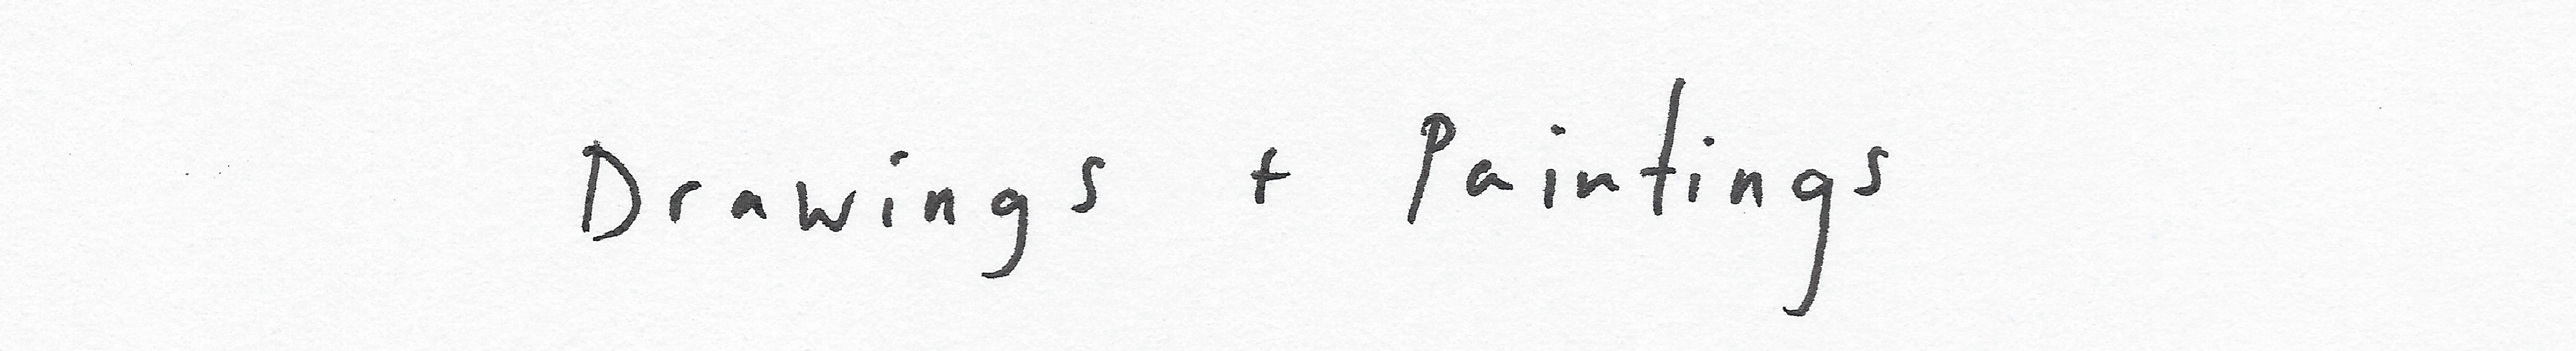 Drawings + Paintings